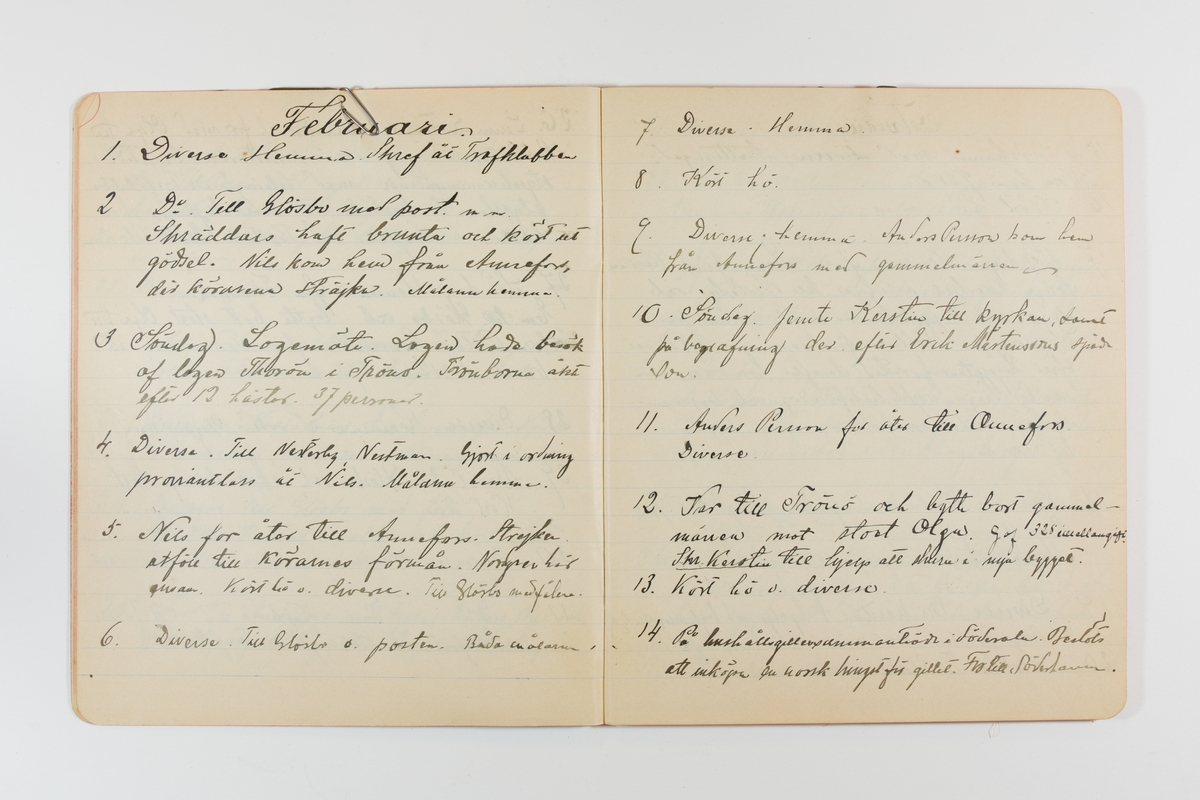 Februari.
1. Diverse Hemma. Skref åt Trafklubben
2 Do. Till Glösbo med post. m m.
Skräddars haft brunta och kört ut
gödsel. Nils kom hem från Annefors,
der körarena sträjka. Målarna hemma.
3 Söndag. Logemöte. Logen hade besök
af logen Thorön i Trönö. Trönborna åkt
efter 12 hästar. 37 personer.
4. Diverse. Till Vesterby, Vestman. Gjort i ordning
proviantlass åt Nils. Målarna hemma.
5. Nils for åter till Annefors. Strejken
utföll till körarnes förmån. Norgren här
Kört hö o. diverse. Till Glösbo med
6. Diverse. Till Glösbo o. posten. Båda målarna
7. Diverse. Hemma
8. Kört hö.
9. Diverse; hemma. Anders Persson kom hem
från Annefors med gammelmärren
10. Söndag. Jemte Kerstin till kyrkan, samt
på begrafning der efter Erik Mårtenssons späda
son.
11. Anders Persson for åter till Annefors
Diverse.
12. Var till Trönö och bytte bort gammel-
märren mot stoet Olga. Gaf 325 i mellangift.
Skr. Kerstin till hjelp att i nya bygget.
13. Kört hö o. diverse.
14. På hushållsgillessammanträde i Söderala. Beslöts
att inköpa en norsk hingst för gillet. Fr till Söderhamn.